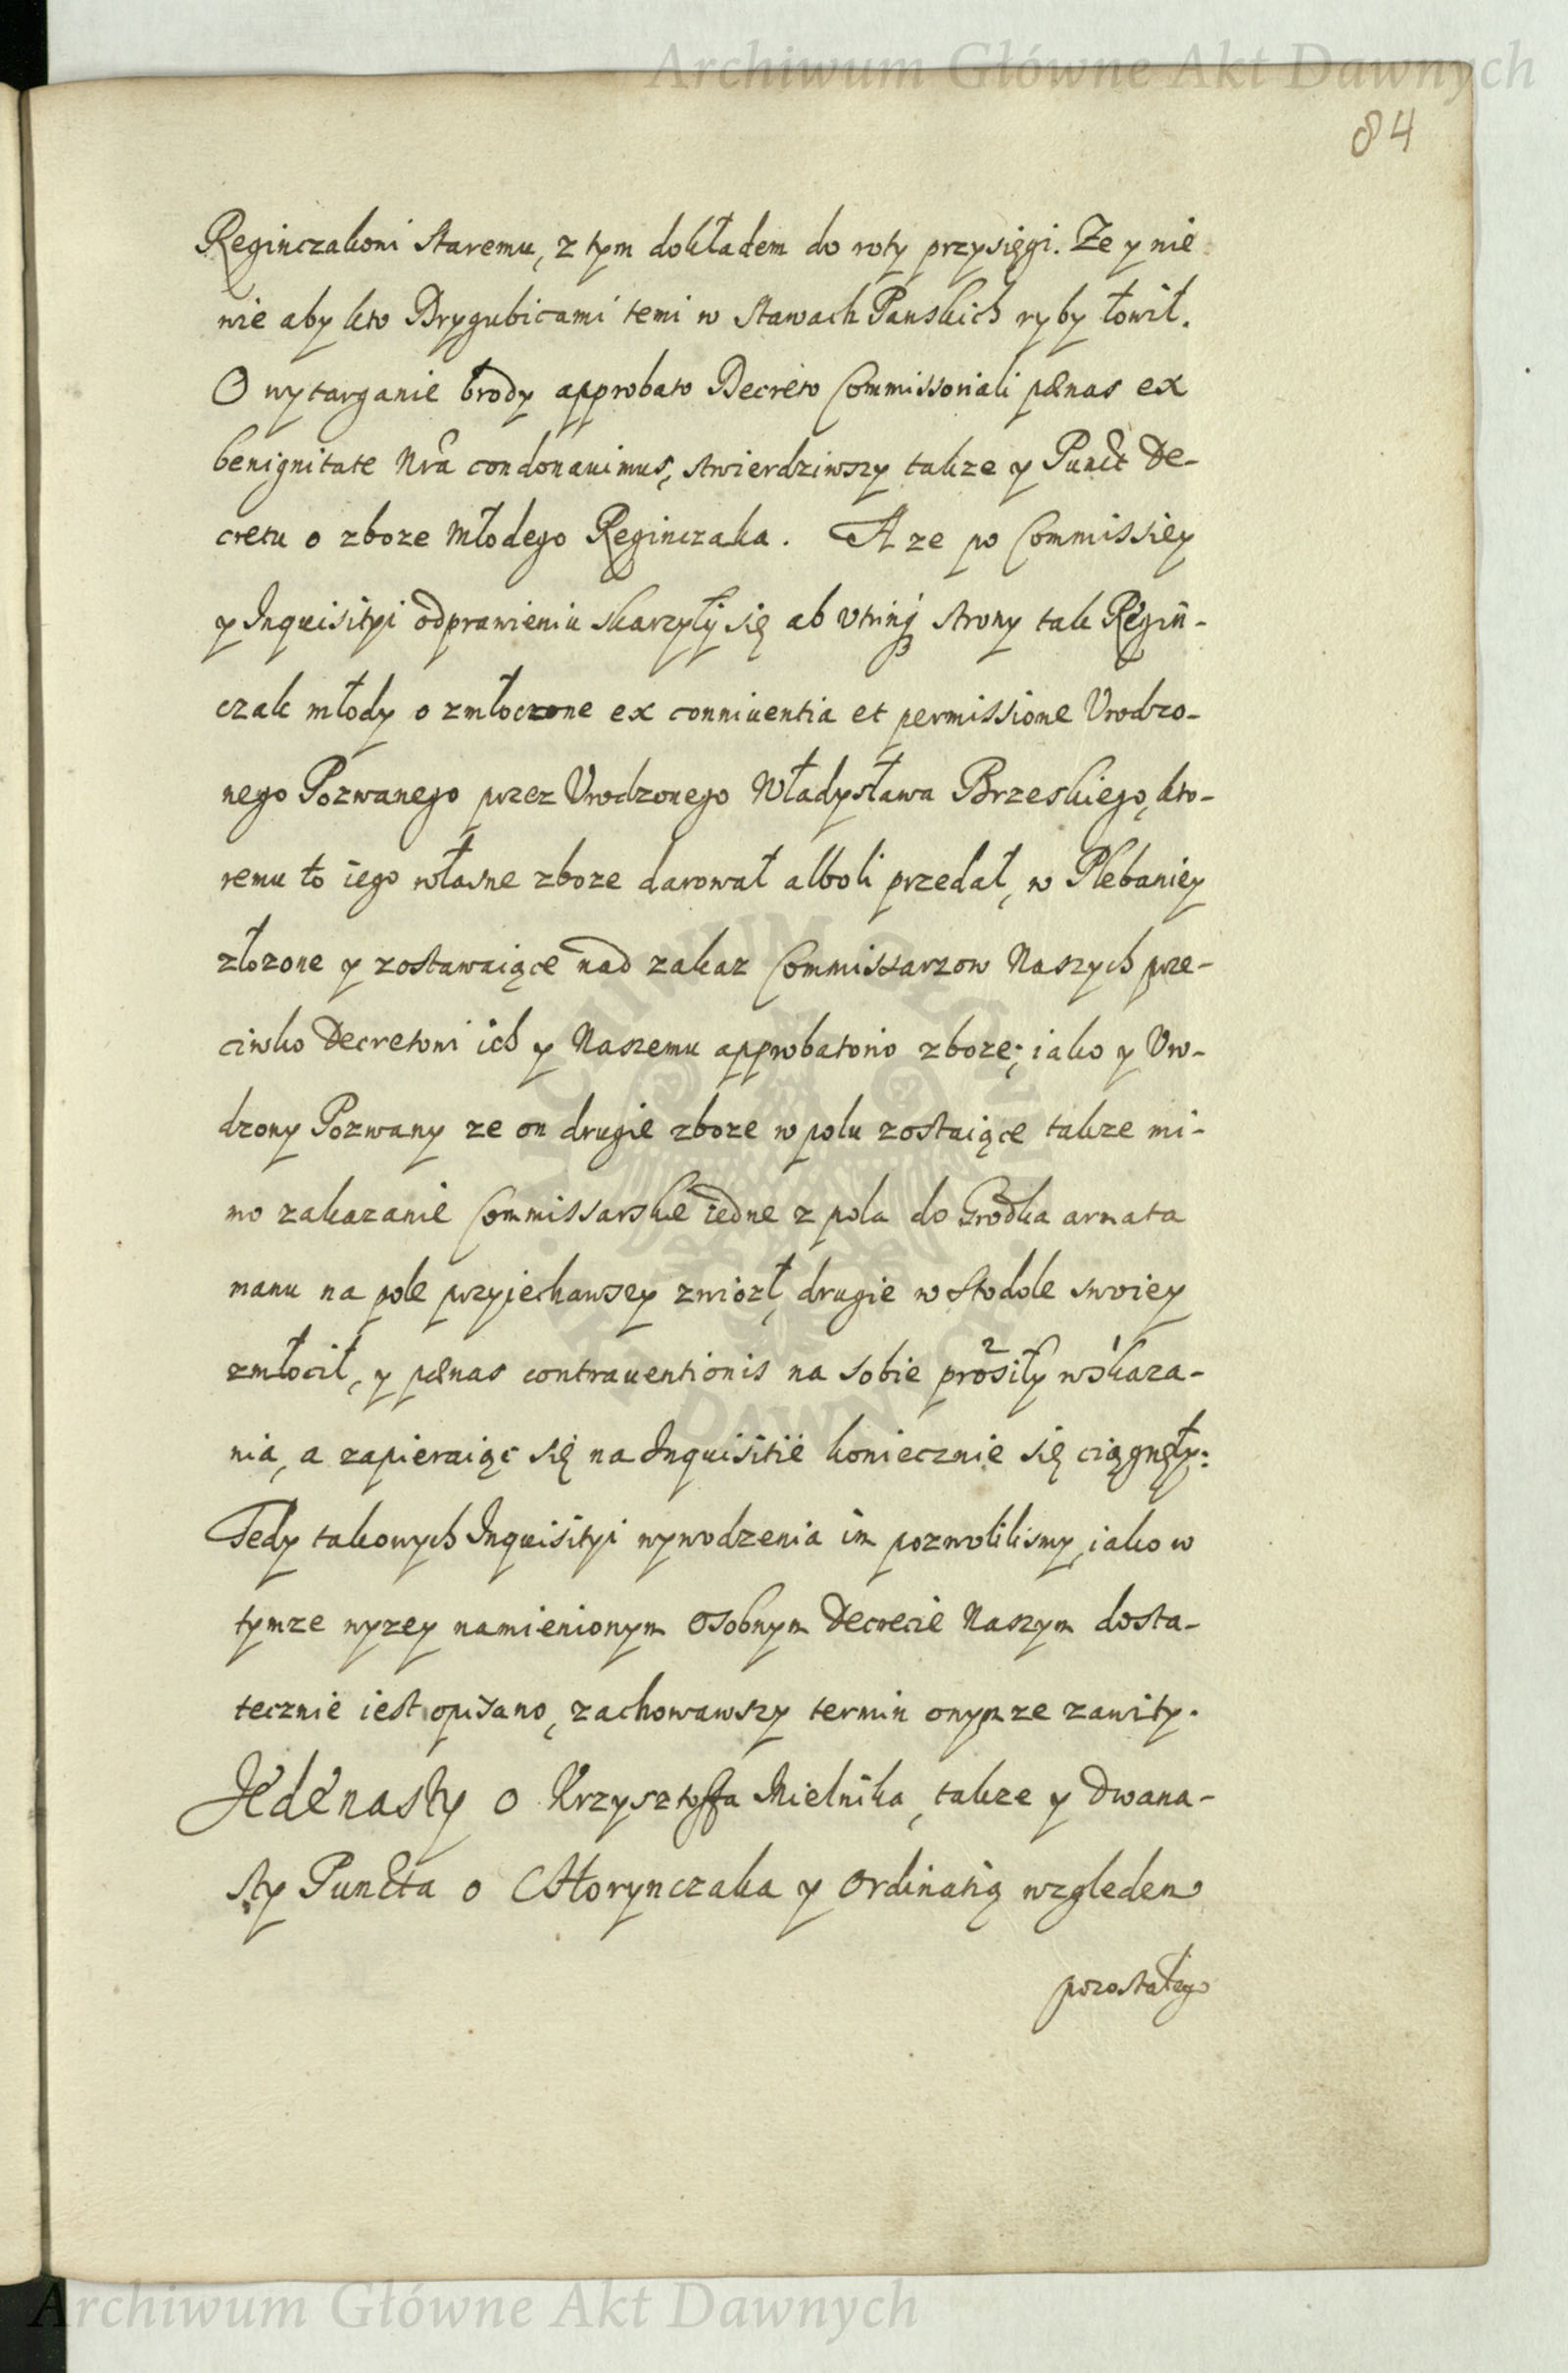 Archiwum Główne Akt Dawnych
84
Reginczakowi Staremu, z tym dokładem do roty przysięgi. Ze y nie
wie aby kto Drygubicami temi w Stawach Panskich ryby łowił.
O wytarganie brody approbato Decreto Commissoriali pænas ex
benignitate Nrã condonauimus, stwierdziwszy takze y Punct De-
cretu o zboze Młodego Reginczaka. A ze po Commissiey
y Inquisityi odprawieniu skarzyły się ab vtrinq strony tak Regiń-
czak młody o zmłoczone ex conniuentia et permissione Vrodzo-
nego Pozwanego przez Vrodzonego Władysława Brzeskiego, kto-
remu to iego własne zboze darował alboli przedał, w Plebaniey
złozone y zostawaiące nad zakaz Commissarzow Naszych prze-
ciwko Decretowi ich y Naszemu approbatorio zboze; iako y Vro-
dzony Pozwany ze on drugie zboze w polu zostaiące takze mi-
mo zakazanie Commissarskie iedne z pola do Grodka armata
manu na pole przyjechawszy zwiozł, drugie w Stodole swoiey
zmłocił, y pænas contrauentionis na sobie prosiły wskaza-
nia, a zapieraiąc się na Inquisitie koniecznie się ciągnęły:
Tedy takowych Inquisityi wywodzenia im pozwolilismy, iako w
tymze wyzey namienionym osobnym Decrecie Naszym dosta-
tecznie iest opisano, zachowawszy termin onymze zawity.
Jedenasty o Krzysztoffa Mielnika, takze y Dwana-
sty Puncta o Chorynczaka y Ordinatią wzgledem
pozostałego
Archiwum Główne Akt Dawnych